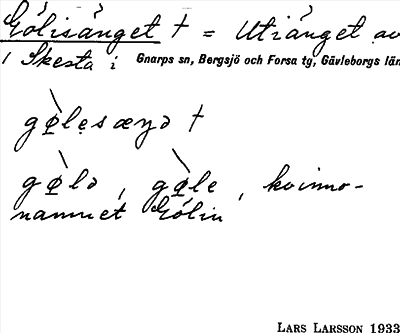 Gölisänget † = Utiänget av
i Skesta i Gnarps sn, Bergsjö och Forsa tg, Gävleborgs län
gø̀lesæŋə †
gø̀lə, gø̀le, kvinno-
namnet Gölin
LARS LARSSON 1933